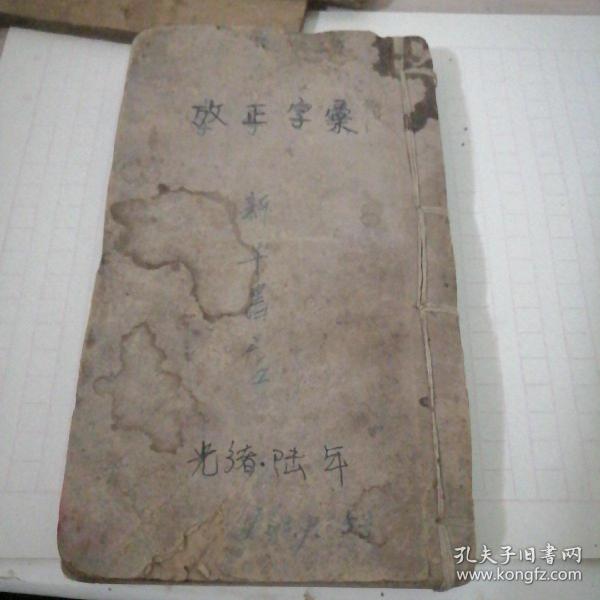 攷正字彙
新华書
光绪·陆年
孔夫子旧書网
www.kongfz.com